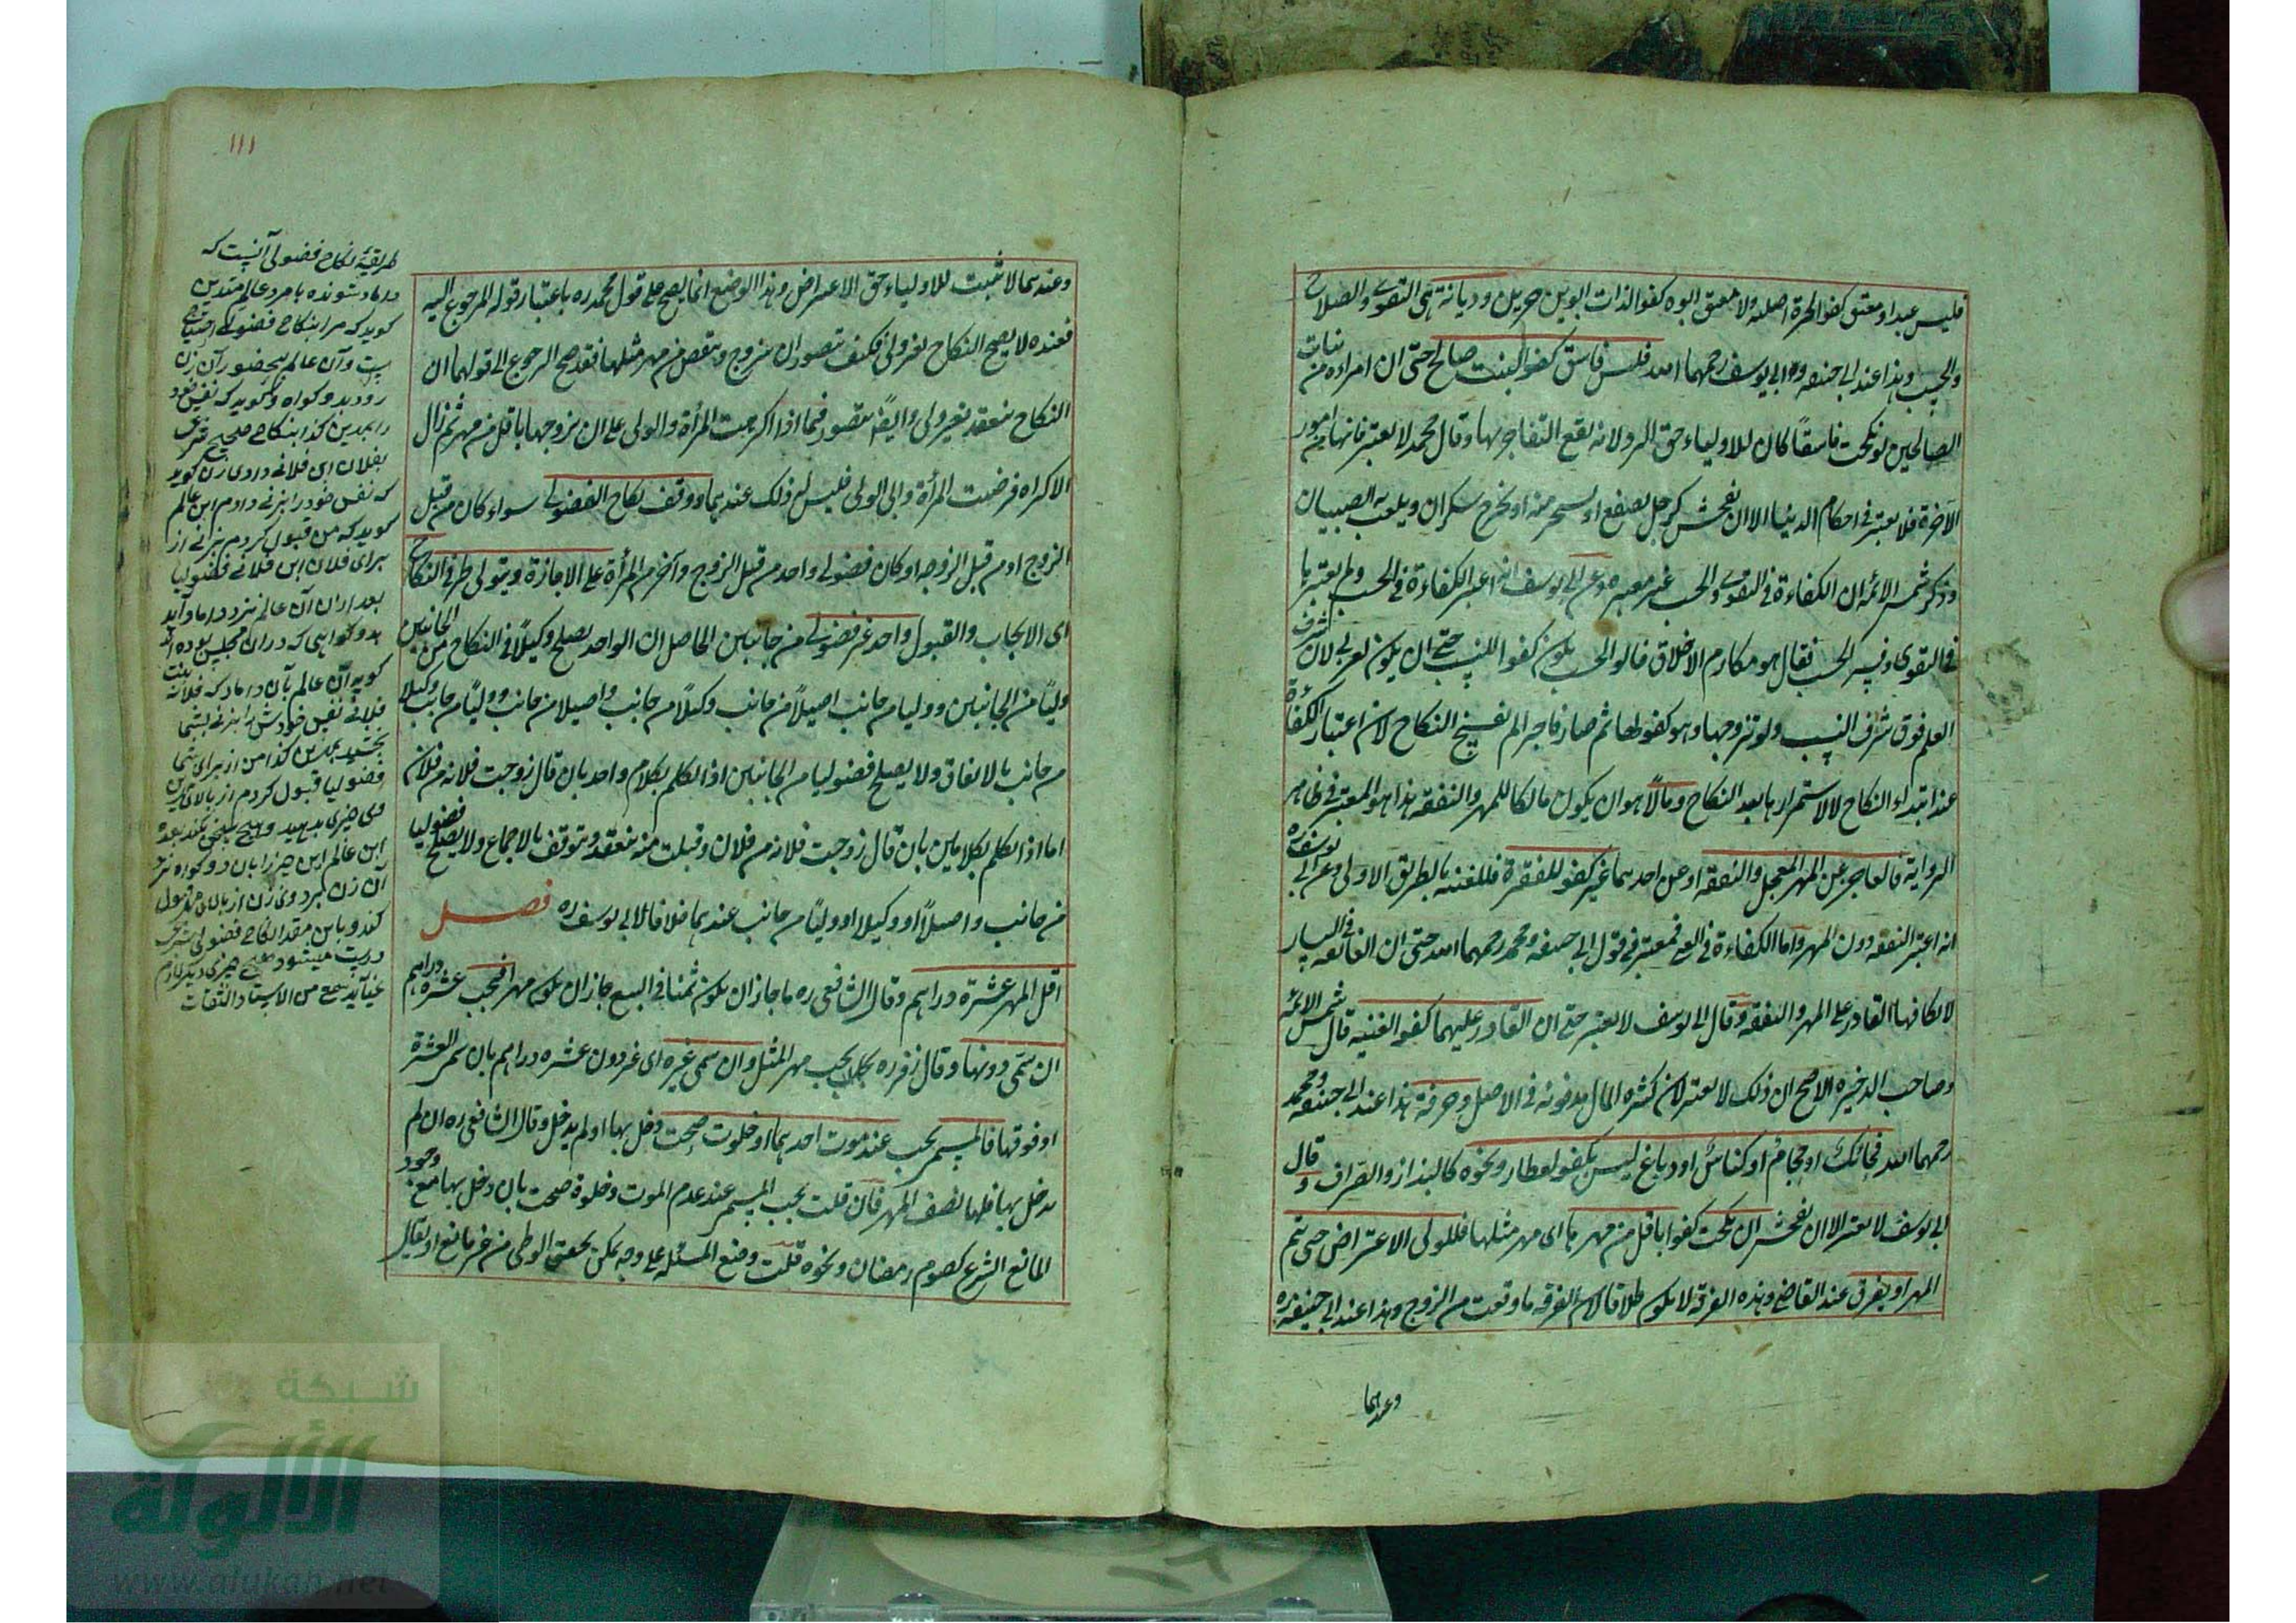 فليس عبد او معتق كفوا لحرة اصلية ولا معتق ابوه كفوا لذات ابوين حرين وديانة هى التقوى والصلاح
والحسب وهذا عند ابى حنيفه وابى يوسف رحمهما الله فليس فاسق كفوا لبنت صالح حتى ان امراءة من بنات
الصالحين لو نكحت فاسقا كان للاولياء حق الرد لانه يقع التفاخر بها وقال محمد لا يعتبر فانها من امور
الآخرة فلا يعتبر فى احكام الدنيا الا ان يفحش كرجل يصفع او يسخر منه او يخرج سكران ويلعب به الصبيان
وذكر شمس الائمه ان الكفاءة فى التقوى والحسب غير معتبره وعن ابى يوسف انه اعتبر الكفاءة فى الحسب ولم يعتبرها
فى التقوى وفسر الحسب فقال هو مكارم الاخلاق قالوا الحسب يكون كفوا للنسب حتى ان يكون لعربى لان شرف
العلم فوق شرف النسب ولو تزوجها وهو كفو لها ثم صار فاجرا لم يفسخ النكاح لان اعتبار الكفاءة
عند ابتداء النكاح لا لاستمرارها بعد النكاح ومالا هو ان يكون مالكا للمهر والنفقه هذا هو المعتبر فى ظاهر
الرواية فالعاجز عن المهر المعجل والنفقه او عن احدهما غير كفو للفقيرة فللغنيه بالطريق الاولى وعن ابى يوسف ره
انه اعتبر النفقه دون المهر واما الكفاءة فى الغنى فمعتبر فى قول ابى حنيفه ومحمد رحمهما الله حتى ان الفائقه فى اليسار
لا يكافئها القادر على المهر والنفقه وقال ابى يوسف لا يعتبر حتى ان القادر عليهما كفو الغنيه قال شمس الائمه
وصاحب الذخيره الاصح ان ذلك لا يعتبر لان كثره المال مذمومه فى الاصل وحرفة هذا عند ابى حنيفه ومحمد
رحمهما الله فحائك او حجام او كناس او دباغ ليس بكفو لعطار ونحوه كالبزاز والصراف وقال
ابى يوسف لا يعتبر الا ان يفحش وان نكحت كفوا باقل من مهرها اى مهر مثلها فللولى الاعتراض حتى يتم
المهر او يفرق عند القاضى وهذه الفرقة لا يكون طلاقا لان الفرقه ما وقعت من الزوج وهذا عند ابى حنيفه ره
وعندهما
١١١
وعندهما لا يثبت للاولياء حق الاعتراض وهذا الوضع انما يصح على قول محمد ره باعتبار قوله المرجوع اليه
فعنده لا يصح النكاح بغير ولى فكيف يتصور ان يتزوج وينقص من مهر مثلها فقد صح الرجوع الى قولهما ان
النكاح ينعقد بغير ولى وايضا يتصور فيما اذا اكرهت المرأة والولى على ان يزوجها باقل من مهر ثم زال
الاكراه فرضيت المرأة وابى الولى فليس له ذلك عندهما ووقف نكاح الفضولى سواء كان من قبل
الزوج او من قبل الزوجه او كان فضولى واحد من قبل الزوج وآخر من المرأة على الاجازة ويتولى طرفى النكاح
اى الايجاب والقبول واحد غير فضولى من جانبين الحاصل ان الواحد يصلح وكيلا فى النكاح من الجانبين
ووليا من الجانبين ووليا من جانب اصيلا من جانب وكيلا من جانب واصيلا من جانب ووليا من جانب وكيلا
من جانب بالاتفاق ولا يصلح فضوليا من الجانبين اذا تكلم بكلام واحد بان قال زوجت فلانه من فلان
اما اذا تكلم بكلامين بان قال زوجت فلانه من فلان وقبلت منه ينعقد ويتوقف بالاجماع ولا يصلح فضوليا
من جانب واصيلا او وكيلا او وليا من جانب عندهما خلافا لابى يوسف ره فصل
اقل المهر عشرة دراهم وقال الشافعى ره ما جاز ان يكون ثمنا فى البيع جاز ان يكون مهرا فيجب عشره دراهم
ان سمى دونها وقال زفر ره يجب مهر المثل وان سمى غيره اى غير دون عشره دراهم بان سمى العشرة
او فوقها فالمسمى يجب عند موت احدهما او خلوت صحت دخل بها او لم يدخل وقال الشافعى ره ان لم
يدخل بها فلها نصف المهر فان قلت يجب المسمى عند عدم الموت وخلوة صحت بان دخل بها مع وجود
المانع الشرع كصوم رمضان ونحوه قلت وضع المسئله على وجه يمكن تحقق الوطى من غير مانع او يقال
طريقه نكاح فضولى آنست كه
داماد شونده با مرد عالم متدين
كويد كه مرا بنكاح فضولى احتياج
است وآن عالم بحضور آن زن
رود بدو كواه وكويد كه نفس خود
را بمهر كذا بنكاح صحيح شرعى
بفلان ابن فلان دادى زن كويد
كه نفس خود را بزنى دادم اين عالم
كويد كه من قبول كردم بزنى از
براى فلان ابن فلانى فضوليا
بعد از ان آن عالم نزد داماد آيد
بدو كواهى كه دران مجلس بوده اند
كويد آن عالم بآن داماد كه فلانه بنت
فلانى نفس خودش را بزنى بشما
بخشيد بمهر كذا من از براى شما
فضوليا قبول كردم از بالاى مهر
وى چيزى بدهيد وهيچ سخن نكند بعده
اين عالم اين چيز را بان دو كواه نزد
آن زن برد وى زن از بالاى مهر قبول
كند وباين مقدار نكاح فضولى شرعى
درست ميشود هيچ چيزى ديكر لازم
نمى آيد سمع من الاستاد الثقات
شبكة
الألوكة
www.alukah.net